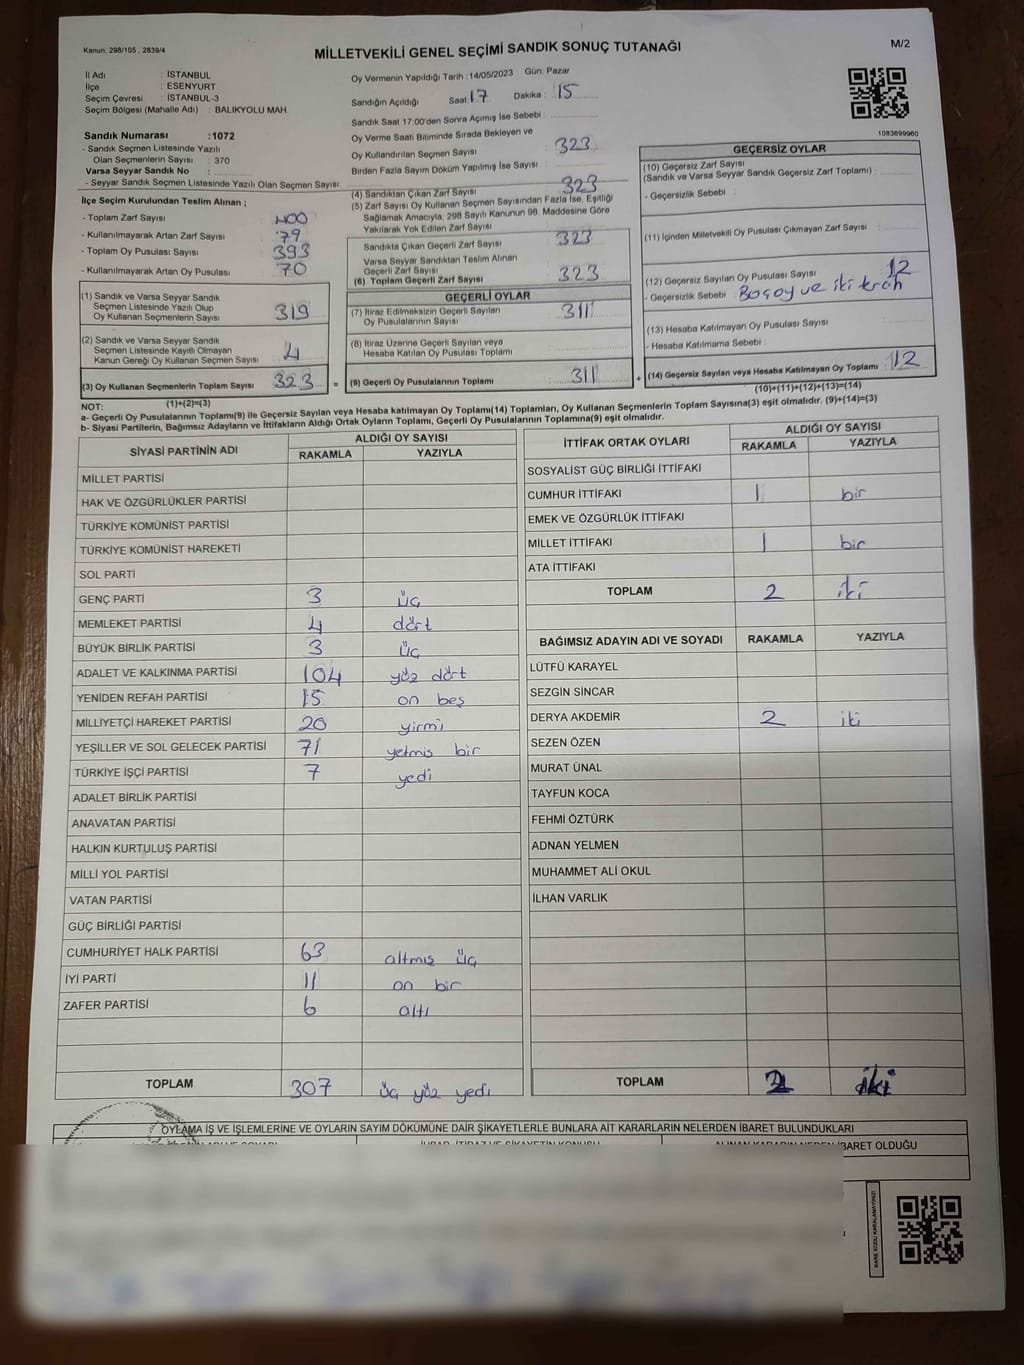 Kanun: 298/105 , 2839/4
MİLLETVEKİLİ GENEL SEÇİMİ SANDIK SONUÇ TUTANAĞI
M/2
İl Adı : İSTANBUL
İlçe : ESENYURT
Seçim Çevresi : İSTANBUL-3
Seçim Bölgesi (Mahalle Adı) : BALIKYOLU MAH.
Sandık Numarası :1072
- Sandık Seçmen Listesinde Yazılı
Olan Seçmenlerin Sayısı : 370
Varsa Seyyar Sandık No :
- Seyyar Sandık Seçmen Listesinde Yazılı Olan Seçmen Sayısı
Oy Vermenin Yapıldığı Tarih :14/05/2023 Gün: Pazar
Sandığın Açıldığı Saat 17 Dakika : 15
Sandık Saat 17:00'den Sonra Açımış İse Sebebi :
Oy Verme Saati Bitiminde Sırada Bekleyen ve
Oy Kullandırılan Seçmen Sayısı : 323
Birden Fazla Sayım Döküm Yapılmış İse Sayısı :
1083699960
İlçe Seçim Kurulundan Teslim Alınan ;
- Toplam Zarf Sayısı : 400
- Kullanılmayarak Artan Zarf Sayısı : 79
- Toplam Oy Pusulası Sayısı : 393
- Kullanılmayarak Artan Oy Pusulası : 70
(1) Sandık ve Varsa Seyyar Sandık
Seçmen Listesinde Yazılı Olup
Oy Kullanan Seçmenlerin Sayısı : 319
(2) Sandık ve Varsa Seyyar Sandık
Seçmen Listesinde Kayıtlı Olmayan
Kanun Gereği Oy Kullanan Seçmen Sayısı : 4
(3) Oy Kullanan Seçmenlerin Toplam Sayısı : 323
(1)+(2)=(3)
(4) Sandıktan Çıkan Zarf Sayısı : 323
(5) Zarf Sayısı Oy Kullanan Seçmen Sayısından Fazla İse, Eşitliği
Sağlamak Amacıyla, 298 Sayılı Kanunun 98. Maddesine Göre
Yakılarak Yok Edilen Zarf Sayısı :
Sandıkta Çıkan Geçerli Zarf Sayısı : 323
Varsa Seyyar Sandıktan Teslim Alınan
Geçerli Zarf Sayısı :
(6) Toplam Geçerli Zarf Sayısı : 323
GEÇERLİ OYLAR
(7) İtiraz Edilmeksizin Geçerli Sayılan
Oy Pusulalarının Sayısı : 311
(8) İtiraz Üzerine Geçerli Sayılan veya
Hesaba Katılan Oy Pusulası Toplamı :
= (9) Geçerli Oy Pusulalarının Toplamı : 311 +
GEÇERSİZ OYLAR
(10) Geçersiz Zarf Sayısı
(Sandık ve Varsa Seyyar Sandık Geçersiz Zarf Toplamı) :
- Geçersizlik Sebebi :
(11) İçinden Milletvekili Oy Pusulası Çıkmayan Zarf Sayısı :
(12) Geçersiz Sayılan Oy Pusulası Sayısı : 12
- Geçersizlik Sebebi : Boş oy ve iki
(13) Hesaba Katılmayan Oy Pusulası Sayısı :
- Hesaba Katılmama Sebebi :
(14) Geçersiz Sayılan veya Hesaba Katılmayan Oy Toplamı : 12
(10)+(11)+(12)+(13)=(14)
NOT:
a- Geçerli Oy Pusulalarının Toplamı(9) ile Geçersiz Sayılan veya Hesaba katılmayan Oy Toplamı(14) Toplamları, Oy Kullanan Seçmenlerin Toplam Sayısına(3) eşit olmalıdır. (9)+(14)=(3)
b- Siyasi Partilerin, Bağımsız Adayların ve İttifakların Aldığı Ortak Oyların Toplamı, Geçerli Oy Pusulalarının Toplamına(9) eşit olmalıdır.
SİYASİ PARTİNİN ADI ALDIĞI OY SAYISI
RAKAMLA YAZIYLA
MİLLET PARTİSİ
HAK VE ÖZGÜRLÜKLER PARTİSİ
TÜRKİYE KOMÜNİST PARTİSİ
TÜRKİYE KOMÜNİST HAREKETİ
SOL PARTİ
GENÇ PARTİ 3 üç
MEMLEKET PARTİSİ 4 dört
BÜYÜK BİRLİK PARTİSİ 3 üç
ADALET VE KALKINMA PARTİSİ 104 yüz dört
YENİDEN REFAH PARTİSİ 15 on beş
MİLLİYETÇİ HAREKET PARTİSİ 20 yirmi
YEŞİLLER VE SOL GELECEK PARTİSİ 71 yetmiş bir
TÜRKİYE İŞÇİ PARTİSİ 7 yedi
ADALET BİRLİK PARTİSİ
ANAVATAN PARTİSİ
HALKIN KURTULUŞ PARTİSİ
MİLLİ YOL PARTİSİ
VATAN PARTİSİ
GÜÇ BİRLİĞİ PARTİSİ
CUMHURİYET HALK PARTİSİ 63 altmış üç
İYİ PARTİ 11 on bir
ZAFER PARTİSİ 6 altı
TOPLAM 307 üç yüz yedi
İTTİFAK ORTAK OYLARI ALDIĞI OY SAYISI
RAKAMLA YAZIYLA
SOSYALİST GÜÇ BİRLİĞİ İTTİFAKI
CUMHUR İTTİFAKI 1 bir
EMEK VE ÖZGÜRLÜK İTTİFAKI
MİLLET İTTİFAKI 1 bir
ATA İTTİFAKI
TOPLAM 2 iki
BAĞIMSIZ ADAYIN ADI VE SOYADI RAKAMLA YAZIYLA
LÜTFÜ KARAYEL
SEZGİN SİNCAR
DERYA AKDEMİR 2 iki
SEZEN ÖZEN
MURAT ÜNAL
TAYFUN KOCA
FEHMİ ÖZTÜRK
ADNAN YELMEN
MUHAMMET ALİ OKUL
İLHAN VARLIK
TOPLAM 2 iki
OYLAMA İŞ VE İŞLEMLERİNE VE OYLARIN SAYIM DÖKÜMÜNE DAİR ŞİKAYETLERLE BUNLARA AİT KARARLARIN NELERDEN İBARET BULUNDUKLARI
ALINAN KARARIN NEDEN İBARET OLDUĞU
KARE KODU KARALAMAYINIZ!